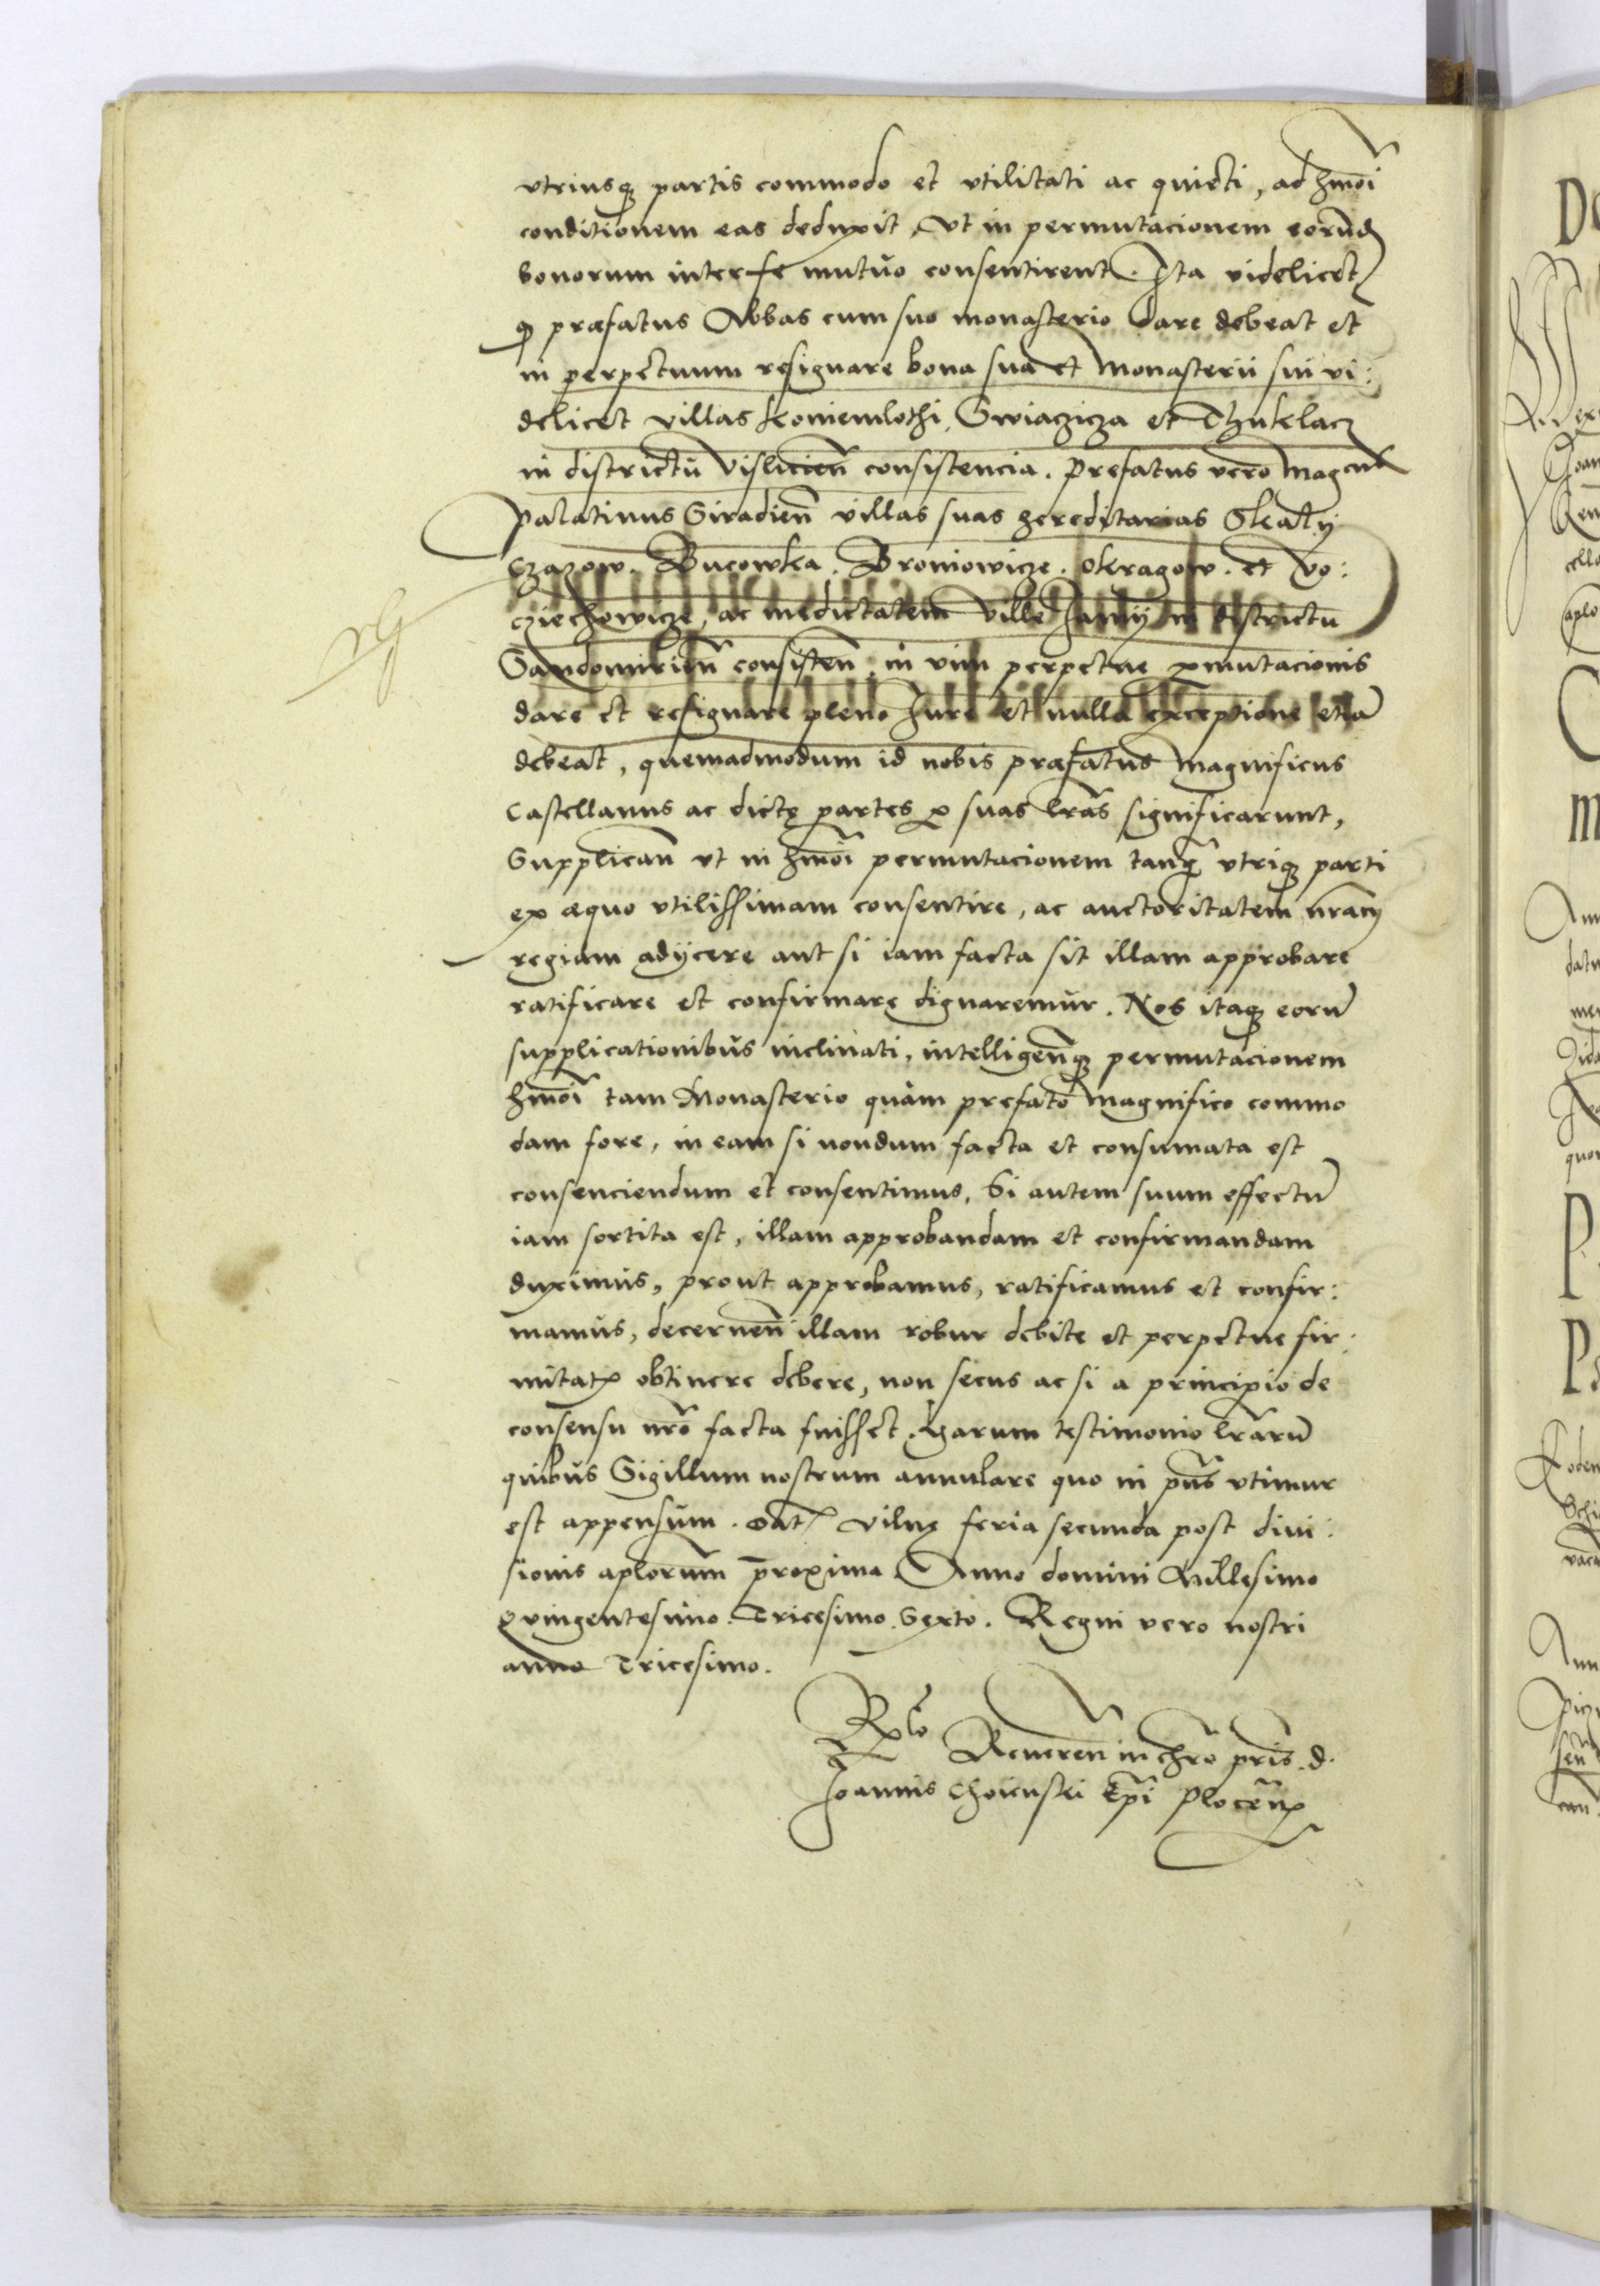 vtriusq partis commodo et vtilitati ac quieti, ad hmoi
conditionem eas deduxit, Vt in permutacionem eorund
bonorum inter se mutuo consentirent. Ita videlicet
q præfatus Abbas cum suo monasterio dare debeat et
in perpetuum resignare bona sua et Monasterii sui vi:
delicet villas koniemlothi, Swiaczicza et
in districtu Vislicien consistencia. Prefatus vero Magcus
Palatinus Siradien villas suas hereditarias Skaly
Czazow. Bucowka. Broniowicze. Okragow. et Vo:
cziechowicze, ac medietatem Ville Janÿ in districtu
Sandomirien consisten in vim perpetue pmutacionis
dare et resignare pleno Jure et nulla exceptione etia
debeat, quemadmodum id nobis præfatus Magnificus
Castellanus ac dictę partes p suas lras significarunt,
Supplican vt in hmoi permutacionem tanq vtriq parti
ex æquo vtilissimam consentire, ac auctoritatem nram
regiam adÿcere aut si iam facta sit illam approbare
ratificare et confirmare dignaremur. Nos itaq eoru
supplicationibus inclinati, intelligenq permutacionem
hmoi tam Monasterio quàm prefato Magnifico commo
dam fore, in eam si nondum facta et consumata est
consenciendum et consentimus, Si autem suum effectu
iam sortita est, illam approbandam et confirmandam
duximus, prout approbamus, ratificamus et confir:
mamus, decernen illam robur debite et perpetue fir:
mitatis obtinere debere, non secus ac si a principio de
consensu nro facta fuisset. Harum testimonio lraru
quibus Sigillum nostrum annulare quo in pns vtimur
est appensum. Dat Vilnę feria secunda post diui:
sionis aplorum proxima Anno domini Millesimo
Quingentesimo. Tricesimo. Sexto. Regni vero nostri
anno Tricesimo.
Rlo Reueren in chro pris. d.
Joannis Choienski Epi Plocen